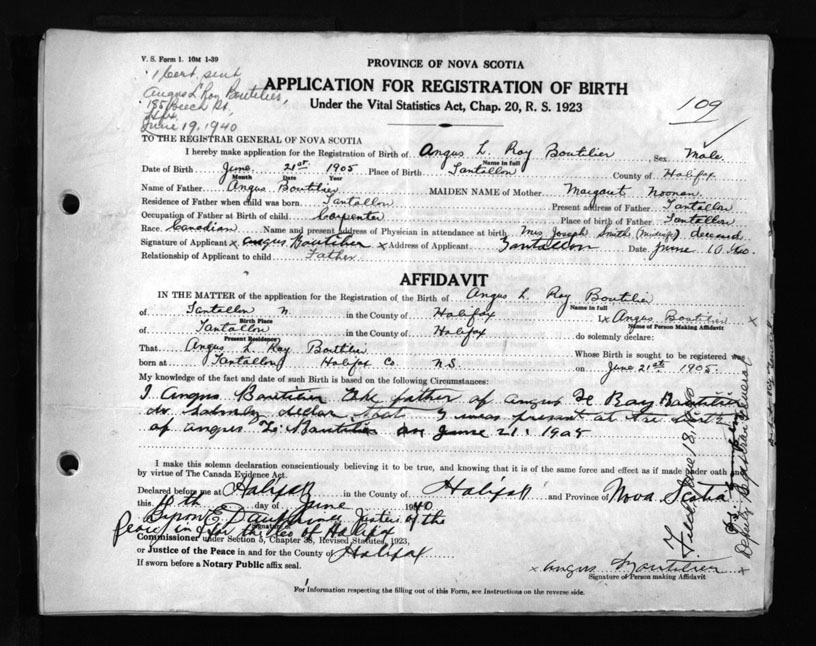 V. S. Form 1. 10M 1-39
1 Cert. sent
Angus L Roy Boutilier,
195 Beech St,
Hfx.
June 19, 1940
PROVINCE OF NOVA SCOTIA
APPLICATION FOR REGISTRATION OF BIRTH
Under the Vital Statistics Act, Chap. 20, R. S. 1923
109
TO THE REGISTRAR GENERAL OF NOVA SCOTIA
I hereby make application for the Registration of Birth of Angus L. Roy Boutilier Sex Male
Name in full
Date of Birth June 21st 1905 Place of Birth Tantallon County of Halifax
Month Date Year
Name of Father Angus Boutilier MAIDEN NAME of Mother Margaret Noonan
Residence of Father when child was born Tantallon Present address of Father Tantallon
Occupation of Father at Birth of child Carpenter Place of birth of Father Tantallon
Race Canadian Name and present address of Physician in attendance at birth Mrs Joseph Smith (Midwife) deceased
Signature of Applicant x Angus Boutilier x Address of Applicant Tantallon Date June 10
Relationship of Applicant to child Father
AFFIDAVIT
IN THE MATTER of the application for the Registration of the Birth of Angus L. Roy Boutilier
Name in full
of Tantallon in the County of Halifax I, x Angus Boutilier x
Birth Place Name of Person Making Affidavit
of Tantallon in the County of Halifax do solemnly declare:
Present Residence
That Angus L. Roy Boutilier Whose Birth is sought to be registered was
born at Tantallon Halifax Co. N.S. on June 21st 1905.
My knowledge of the fact and date of such Birth is based on the following Circumstances:
I Angus Boutilier the father of Angus Le Roy Boutilier
do solemnly declar that I was present at the birth
of Angus Le. Boutilier on June 21. 1905
I make this solemn declaration conscientiously believing it to be true, and knowing that it is of the same force and effect as if made under oath and
by virtue of The Canada Evidence Act.
Declared before me at Halifax in the County of Halifax and Province of Nova Scotia
this day of June 1940
Byron E. Dauphinee, Justice of the
Signature
Peace in & for the Co of Halifax
Commissioner under Section 5, Chapter 38, Revised Statutes, 1923,
or Justice of the Peace in and for the County of Halifax
If sworn before a Notary Public affix seal.
x Angus Boutilier x
Signature of Person making Affidavit
For Information respecting the filling out of this Form, see Instructions on the reverse side.
Deputy Registrar General